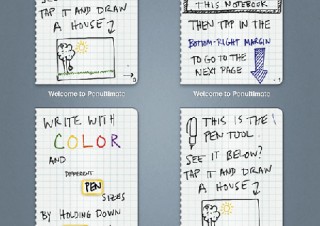 SEE IT BELOW?
TAP IT AND DRAW
A HOUSE
THIS NOTEBOOK
THEN TAP IN THE
BOTTOM-RIGHT MARGIN
TO GO TO THE
NEXT PAGE
Welcome to Penultimate
Welcome to Penultimate
WRITE WITH
COLOR
AND
DIFFERENT
PEN
SIZES
BY HOLDING DOWN
THIS IS THE
PEN TOOL.
SEE IT BELOW?
TAP IT AND DRAW
A HOUSE